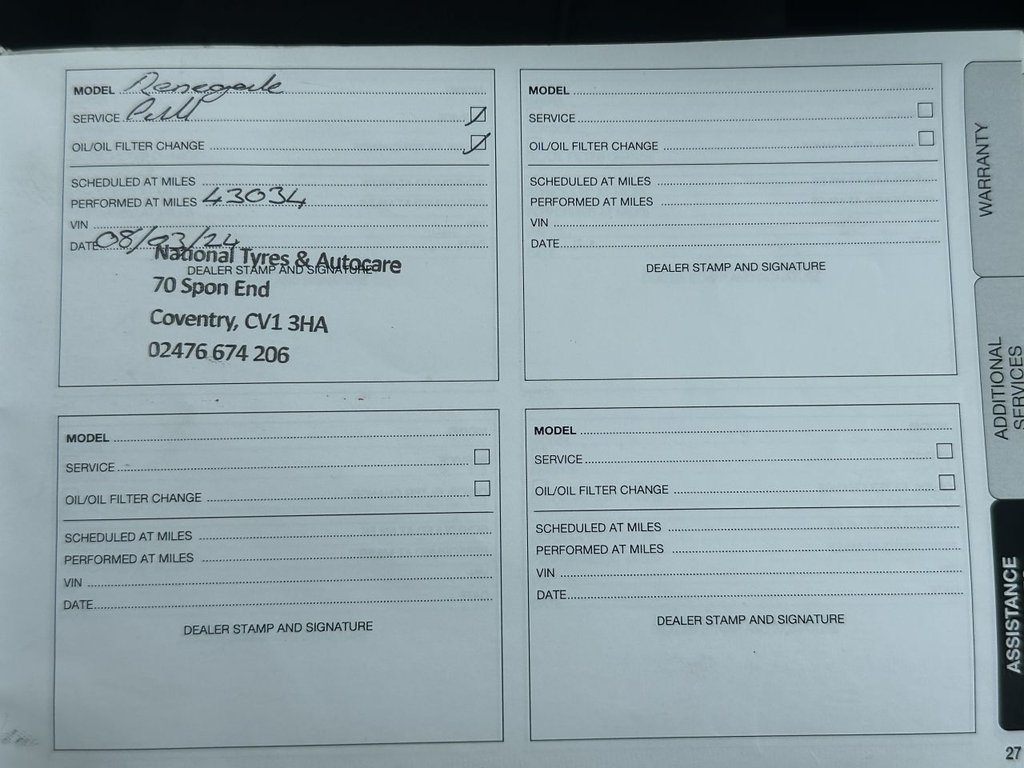 MODEL Renegade
SERVICE Full
OIL/OIL FILTER CHANGE
SCHEDULED AT MILES
PERFORMED AT MILES 43034
VIN
DATE 08/03/24
DEALER STAMP AND SIGNATURE
National Tyres & Autocare
70 Spon End
Coventry, CV1 3HA
02476 674 206
MODEL
SERVICE
OIL/OIL FILTER CHANGE
SCHEDULED AT MILES
PERFORMED AT MILES
VIN
DATE
DEALER STAMP AND SIGNATURE
MODEL
SERVICE
OIL/OIL FILTER CHANGE
SCHEDULED AT MILES
PERFORMED AT MILES
VIN
DATE
DEALER STAMP AND SIGNATURE
MODEL
SERVICE
OIL/OIL FILTER CHANGE
SCHEDULED AT MILES
PERFORMED AT MILES
VIN
DATE
DEALER STAMP AND SIGNATURE
WARRANTY
ADDITIONAL
SERVICES
ASSISTANCE
27